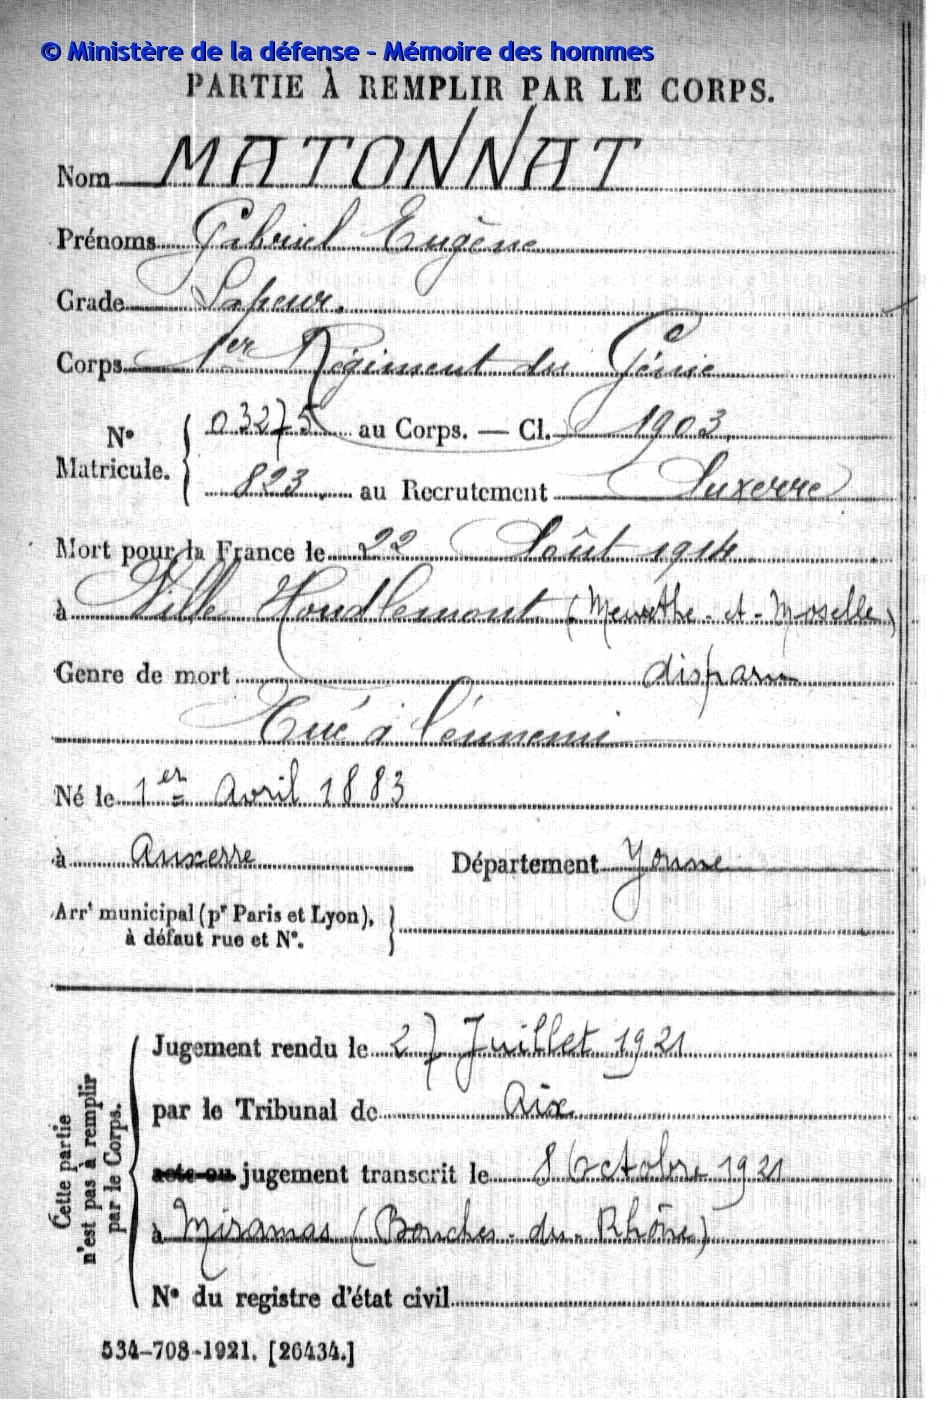 © Ministère de la défense - Mémoire des hommes
PARTIE À REMPLIR PAR LE CORPS.
Nom MATONNAT
Prénoms Gabriel Eugène
Grade Sapeur.
Corps 1er Régiment du Génie
N° Matricule. 03275 au Corps. — Cl. 1903.
823. au Recrutement Auxerre
Mort pour la France le 22 Août 1914
à Ville Houdlemont (Meurthe-et-Moselle)
Genre de mort disparu
Tué à l'ennemi
Né le 1er Avril 1883
à Auxerre Département Yonne
Arrt municipal (pr Paris et Lyon),
à défaut rue et N°.
Cette partie
n'est pas à remplir
par le Corps.
Jugement rendu le 27 Juillet 1921
par le Tribunal de Aix
acte ou jugement transcrit le 8 Octobre 1921
à Miramas (Bouches-du-Rhône)
N° du registre d'état civil
534-708-1921. [26434.]